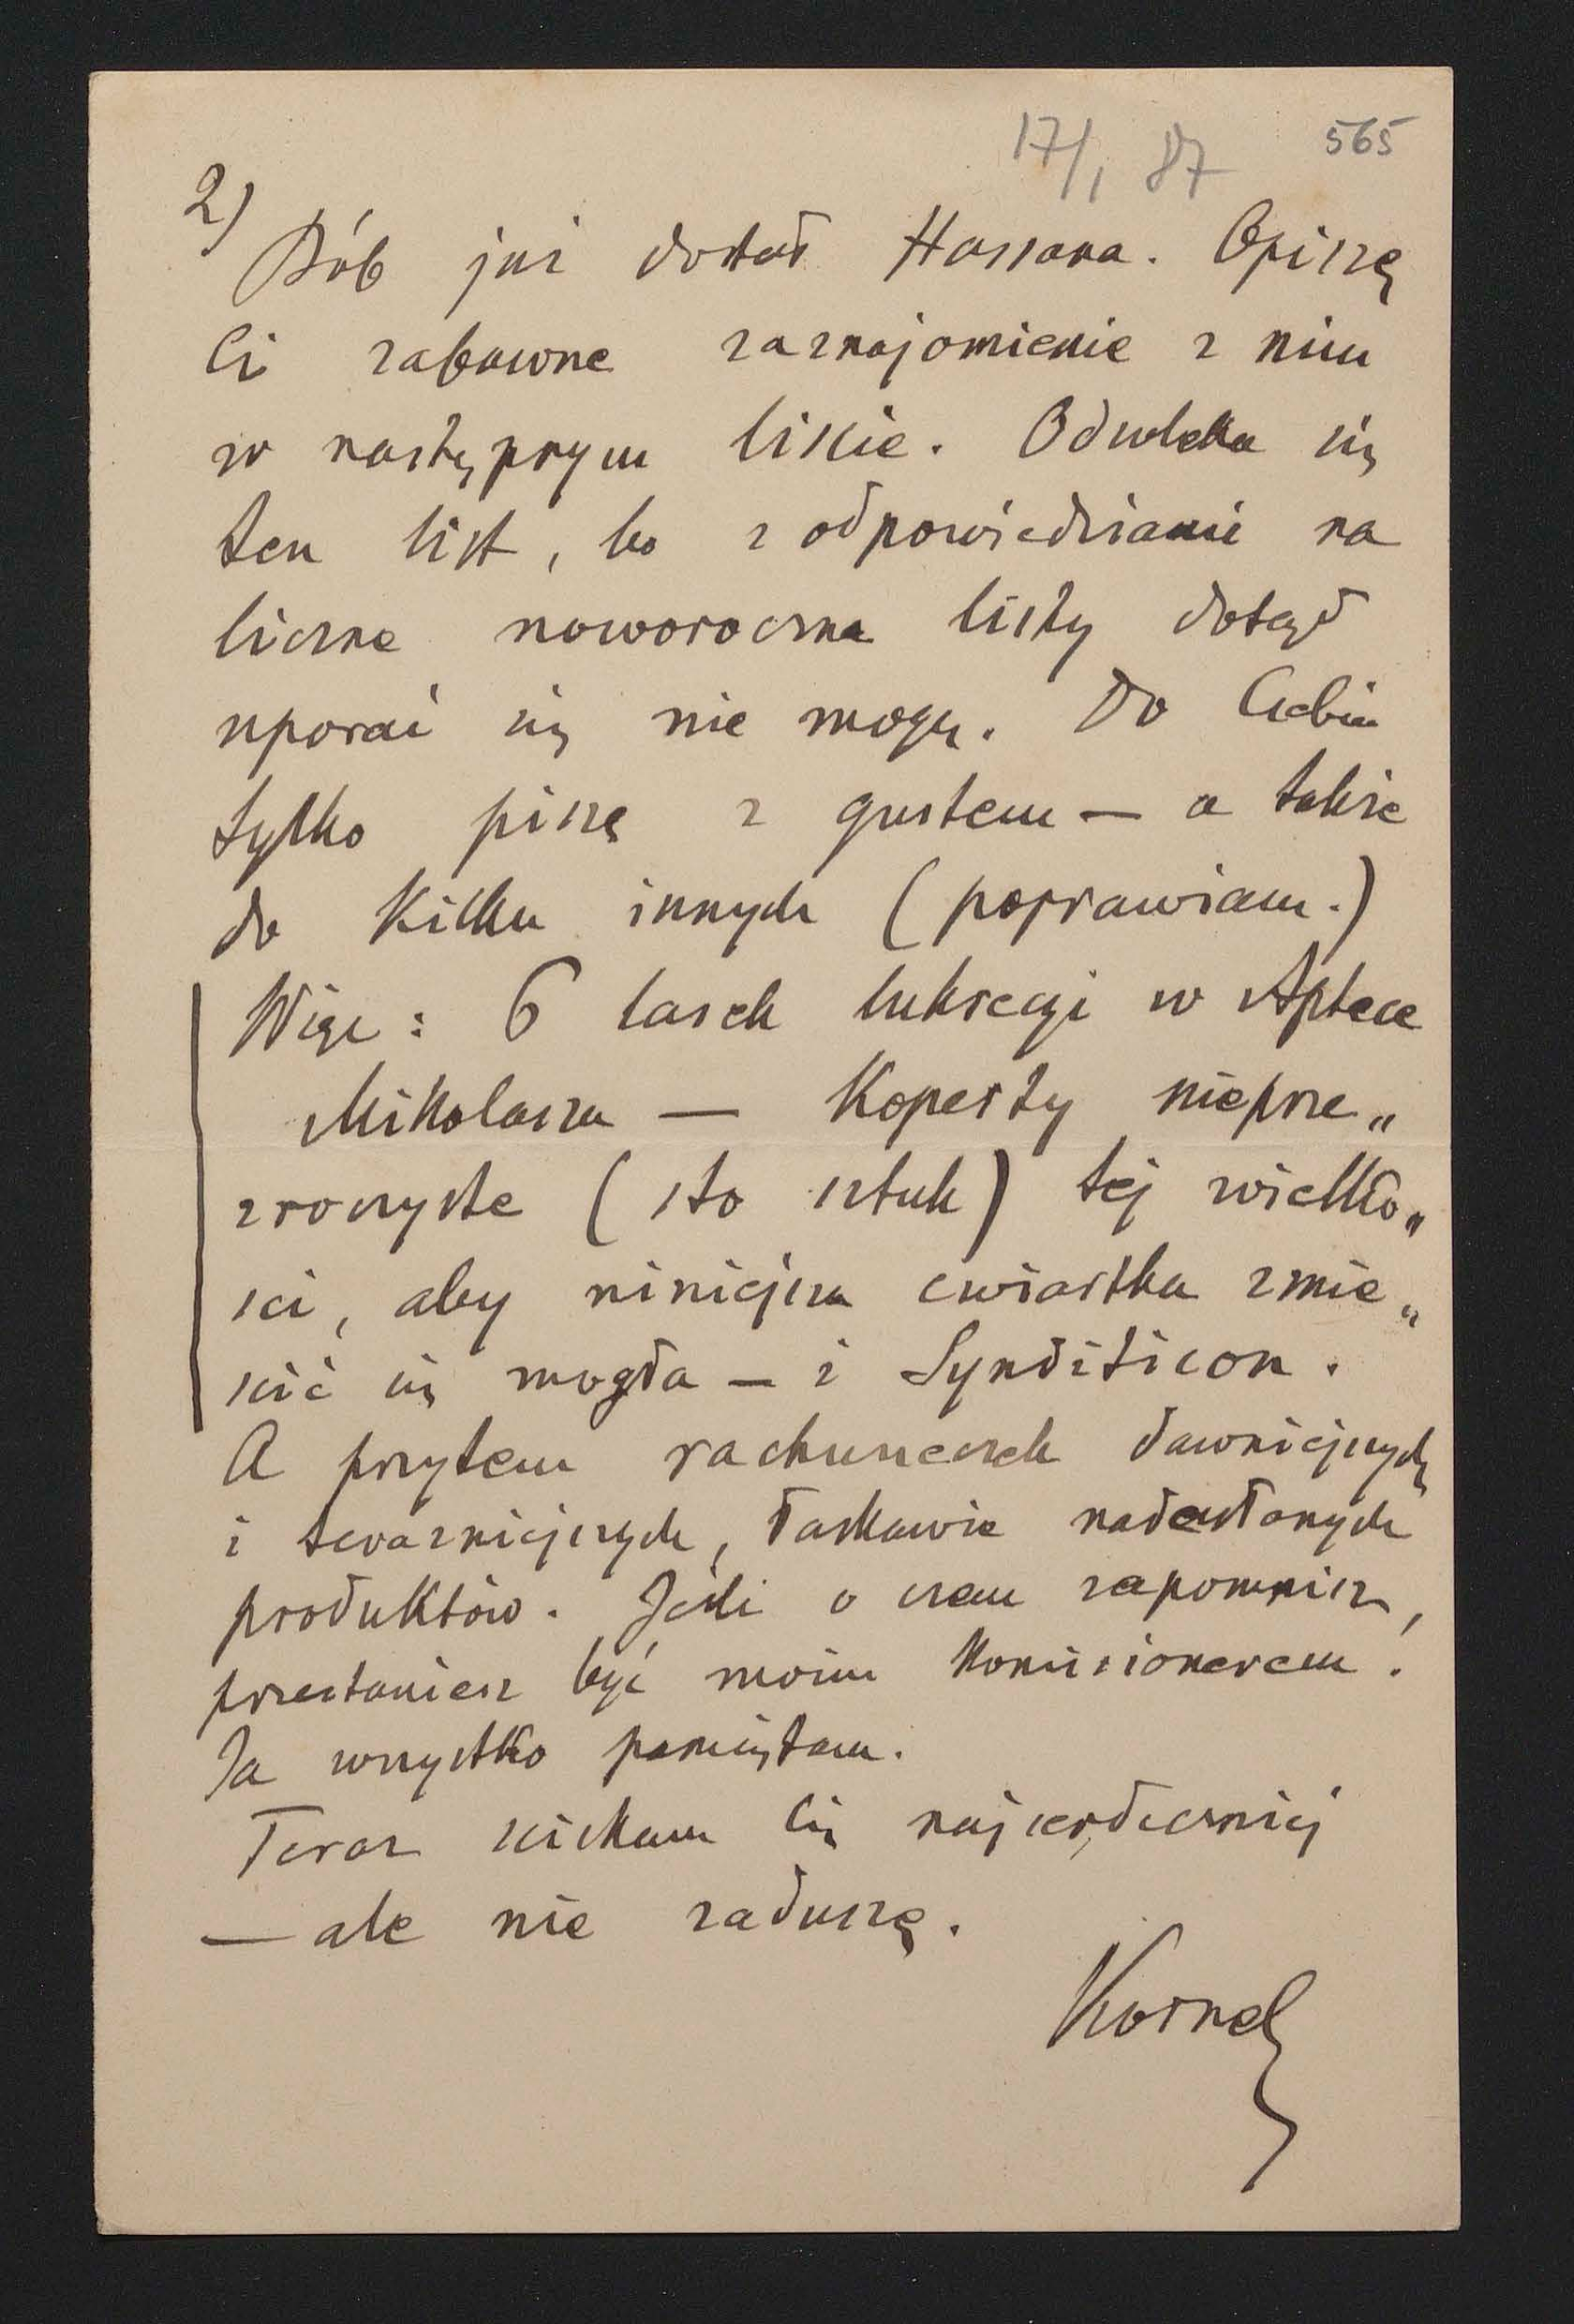 17/1 87 565
2)
Bób już dostał Hassana. Opiszę
Ci zabawne zaznajomienie z nim
w następnym liście. Odwleka się
ten list, bo z odpowiedziami na
liczne noworoczne listy dotąd
uporać się nie mogę. Do Ciebie
tylko piszę z gustem — a także
do kilku innych (poprawiam.)
Więc: 6 lasek lukrecyi w Aptece
Mikolasza — Koperty nieprze„
zroczyste (sto sztuk) tej wielko„
ści, aby niniejsza ćwiartka zmie„
ścić się mogła — i Synditicon.
A przytem rachuneczek dawniejszych
i teraźniejszych, łaskawie nadesłanych
produktów. Jeśli o czem zapomnisz,
przestaniesz być moim Komisionerem!
Ja wszystko pamiętam.
Teraz ściskam Cię najserdeczniej
— ale nie zaduszę.
Kornel